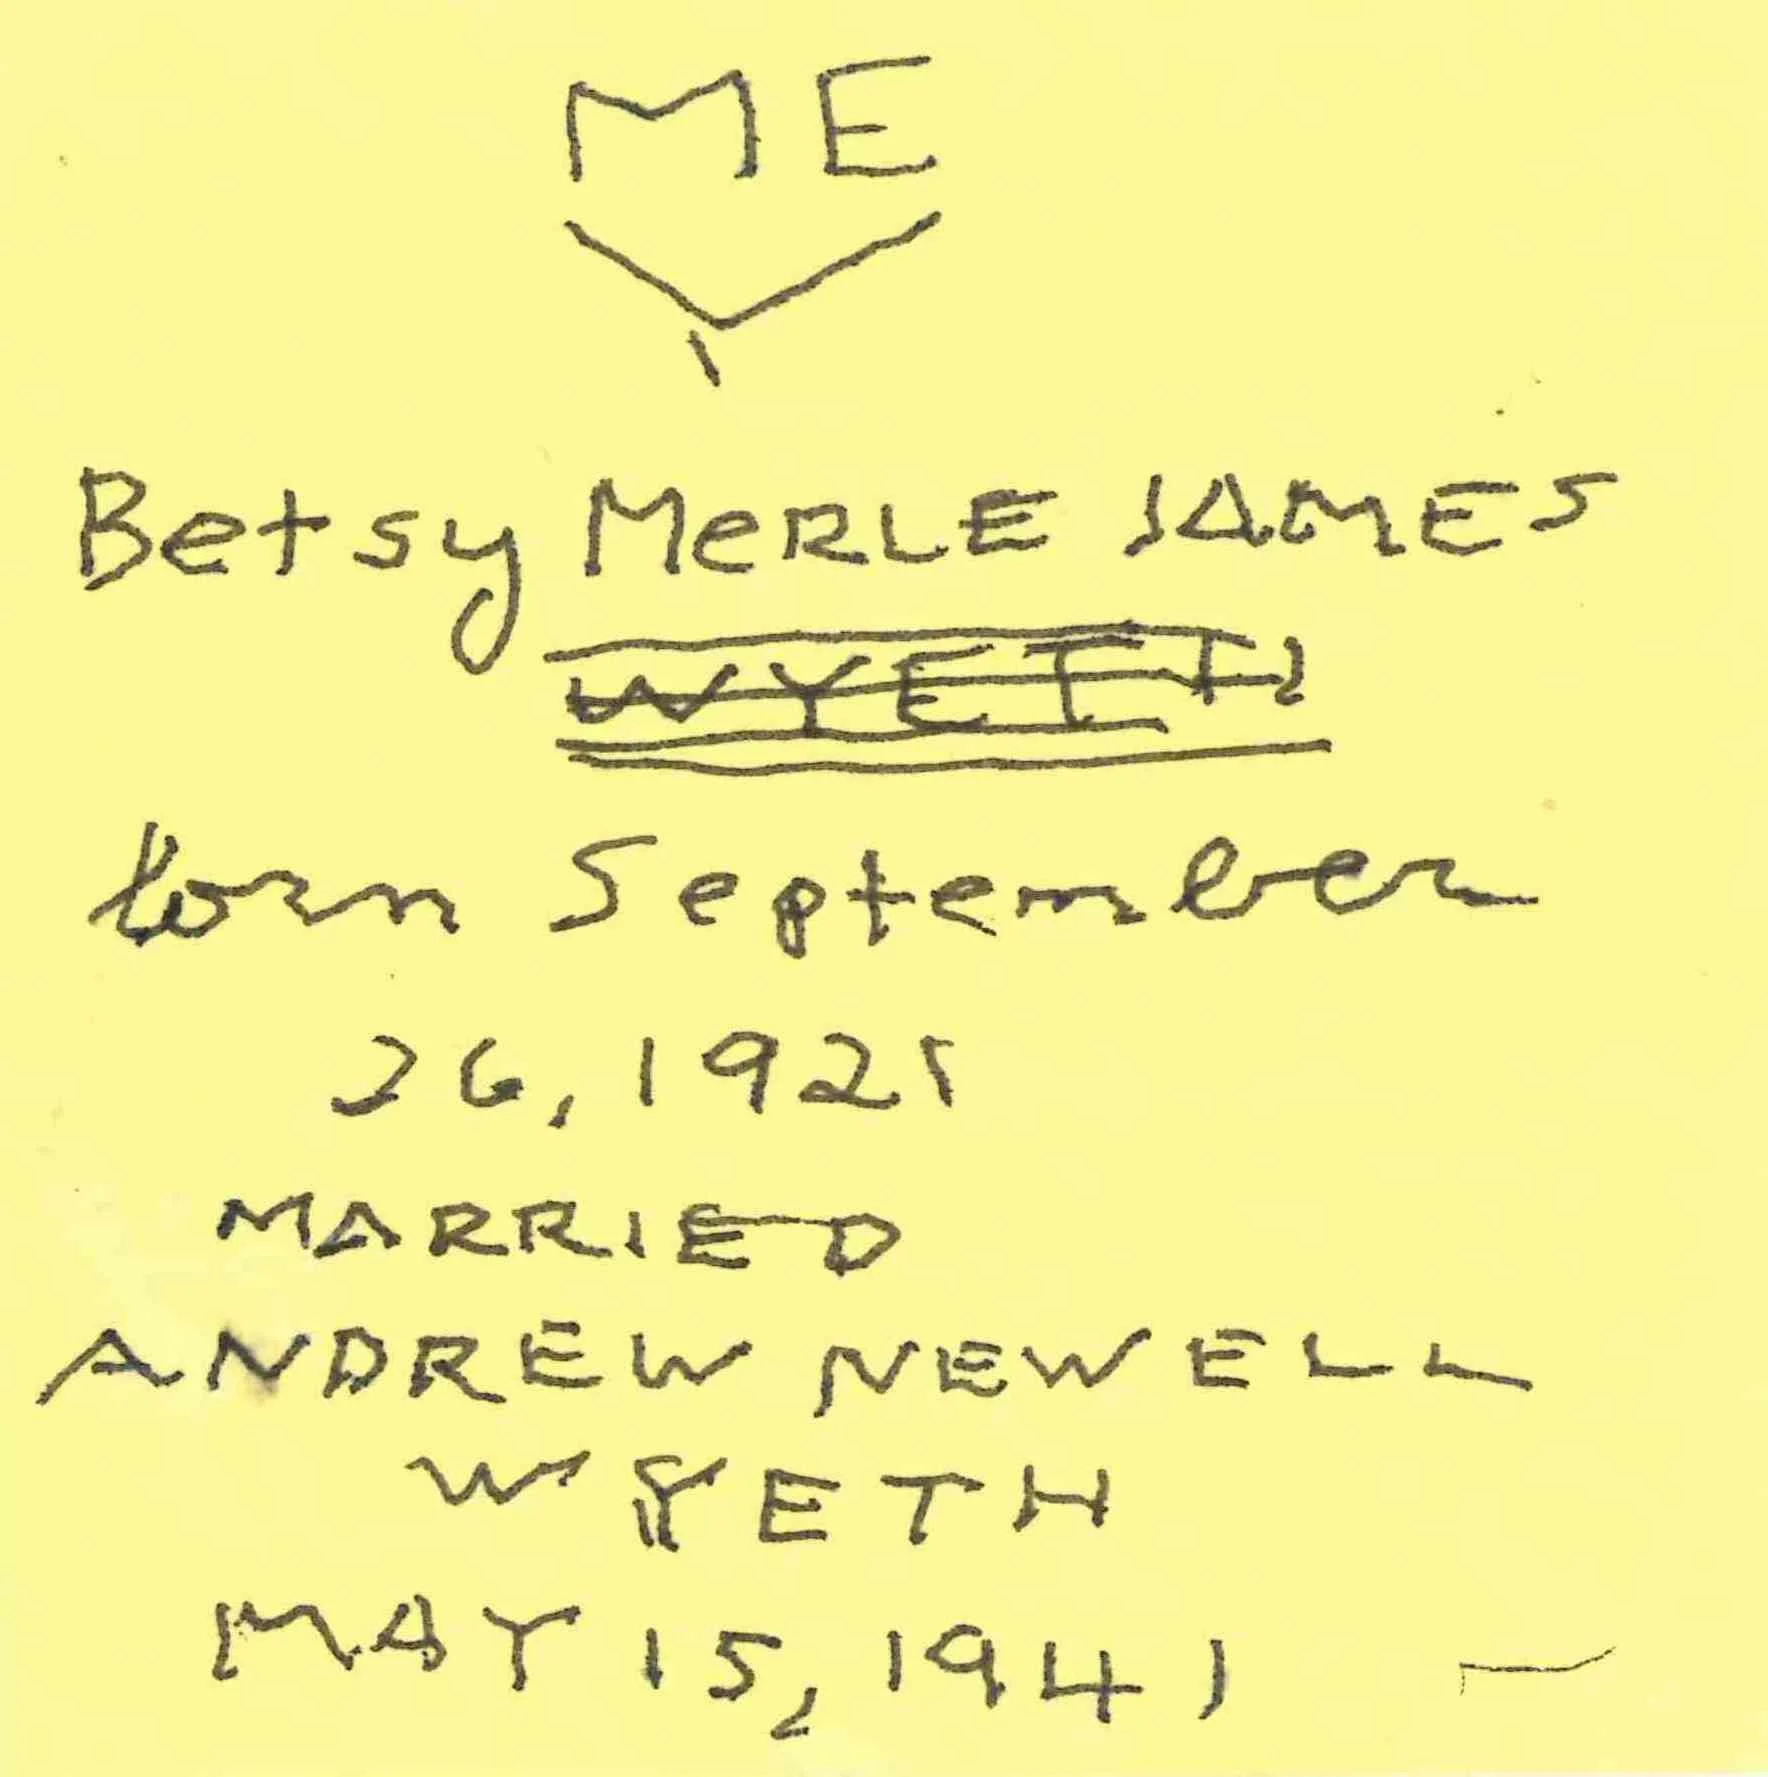 ME
Betsy MeRLE JAMES
WYETH
born September
26, 1921
MARRIED
ANDREW NEWELL
WYETH
MAY 15, 1941